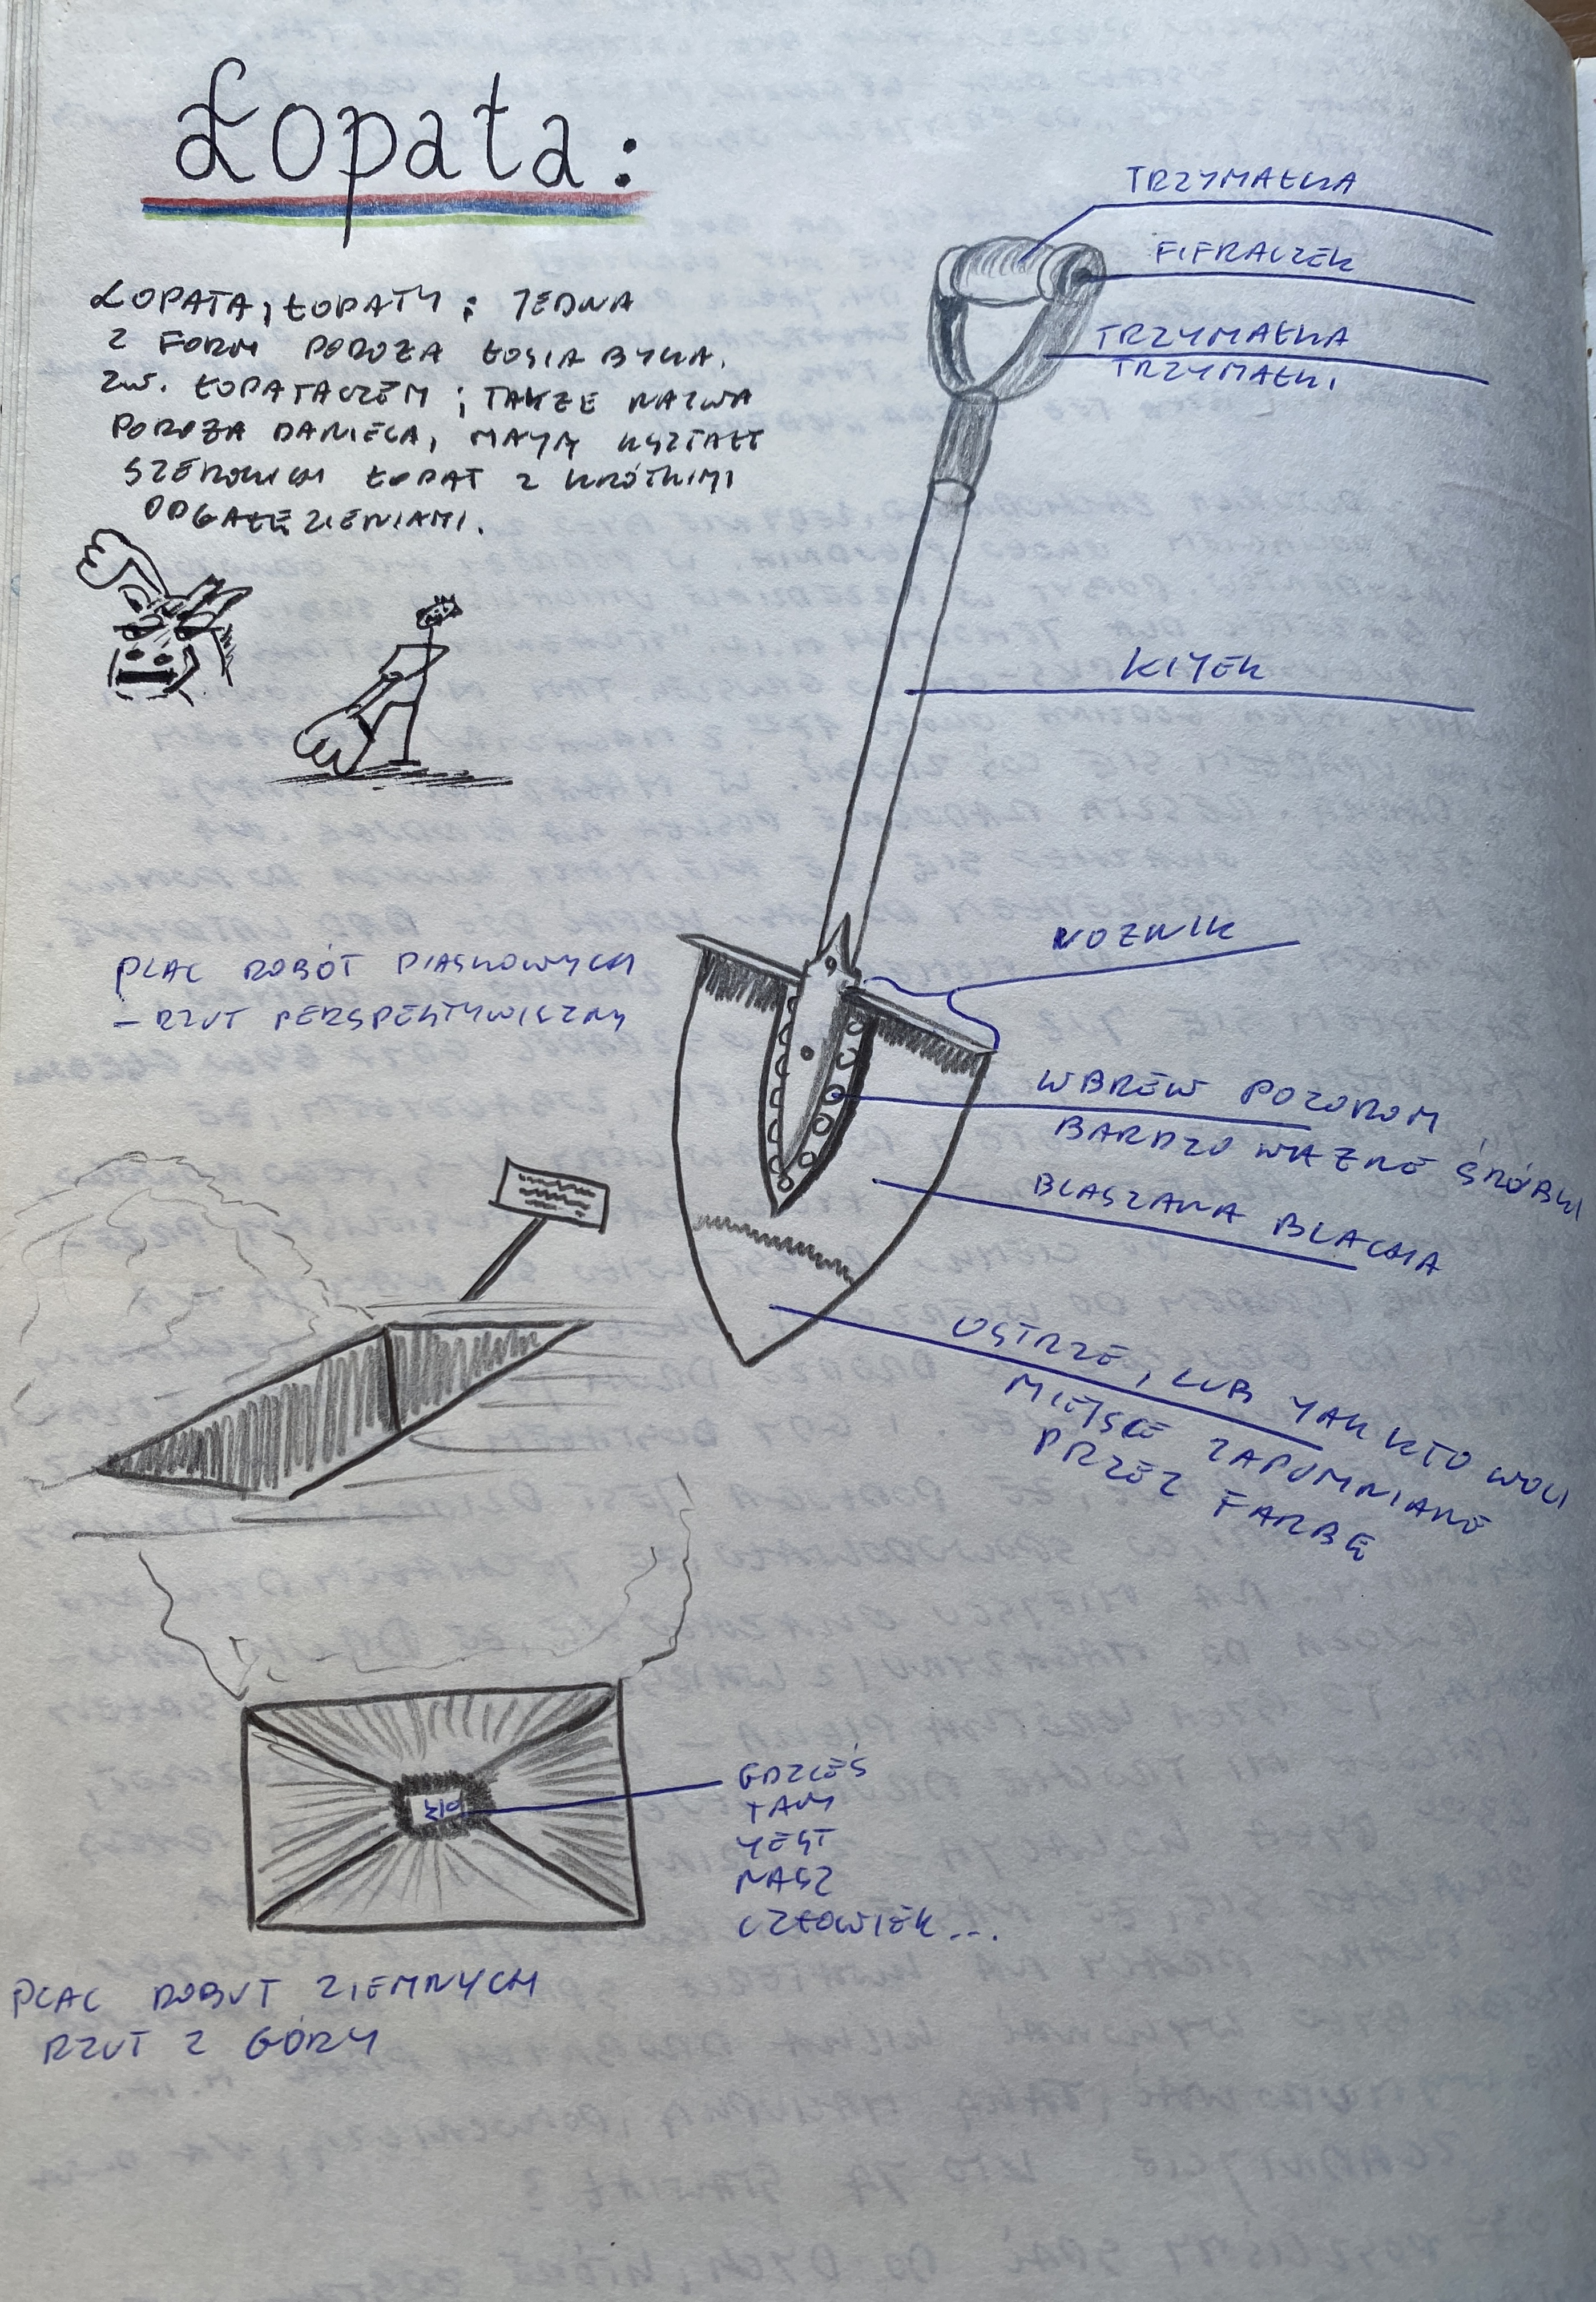 Łopata:
ŁOPATA, ŁOPATY; JEDNA
Z FORM POROŻA ŁOSIA BYKA,
ZW. ŁOPATACZEM; TAKŻE NAZWA
POROŻA DANIELA, MAYĄ KSZTAŁT
SZEROKICH ŁOPAT Z KRÓTKIMI
ODGAŁĘZIENIAMI.
TRZYMAŁKA
FIFRACZEK
TRZYMAŁKA
TRZYMAŁKI
KIYEK
NOŻNIK
WBREW POZOROM
BARDZO WAŻNE ŚRÓBKI
BLASZANA BLACHA
OSTRZE, LUB YAK KTO WOLI
MIEJSCE ZAPOMNIANE
PRZEZ FARBĘ
PLAC ROBÓT PIASKOWYCH
- RZUT PERSPEKTYWICZNY
GDZIEŚ
TAM
YEST
NASZ
CZŁOWIEK...
PLAC ROBUT ZIEMNYCH
RZUT Z GÓRY